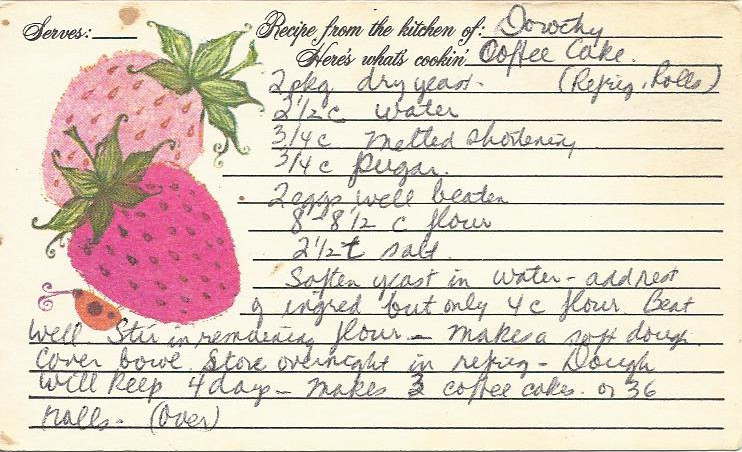 Serves:
Recipe from the kitchen of: Dorothy
Here's what's cookin' Coffee Cake.
2 pkg dry yeast. (Refrig. Rolls)
2 1/2 c water
3/4 c melted shortening
3/4 c sugar.
2 eggs well beaten
8 - 8 1/2 c flour
2 1/2 t salt
Soften yeast in water - add rest
of ingred but only 4 c flour. Beat
well Stir in remaining flour - makes a soft dough.
Cover bowl. Store overnight in refrig - Dough
will keep 4 days - makes 3 coffee cakes. or 36
rolls - (over)